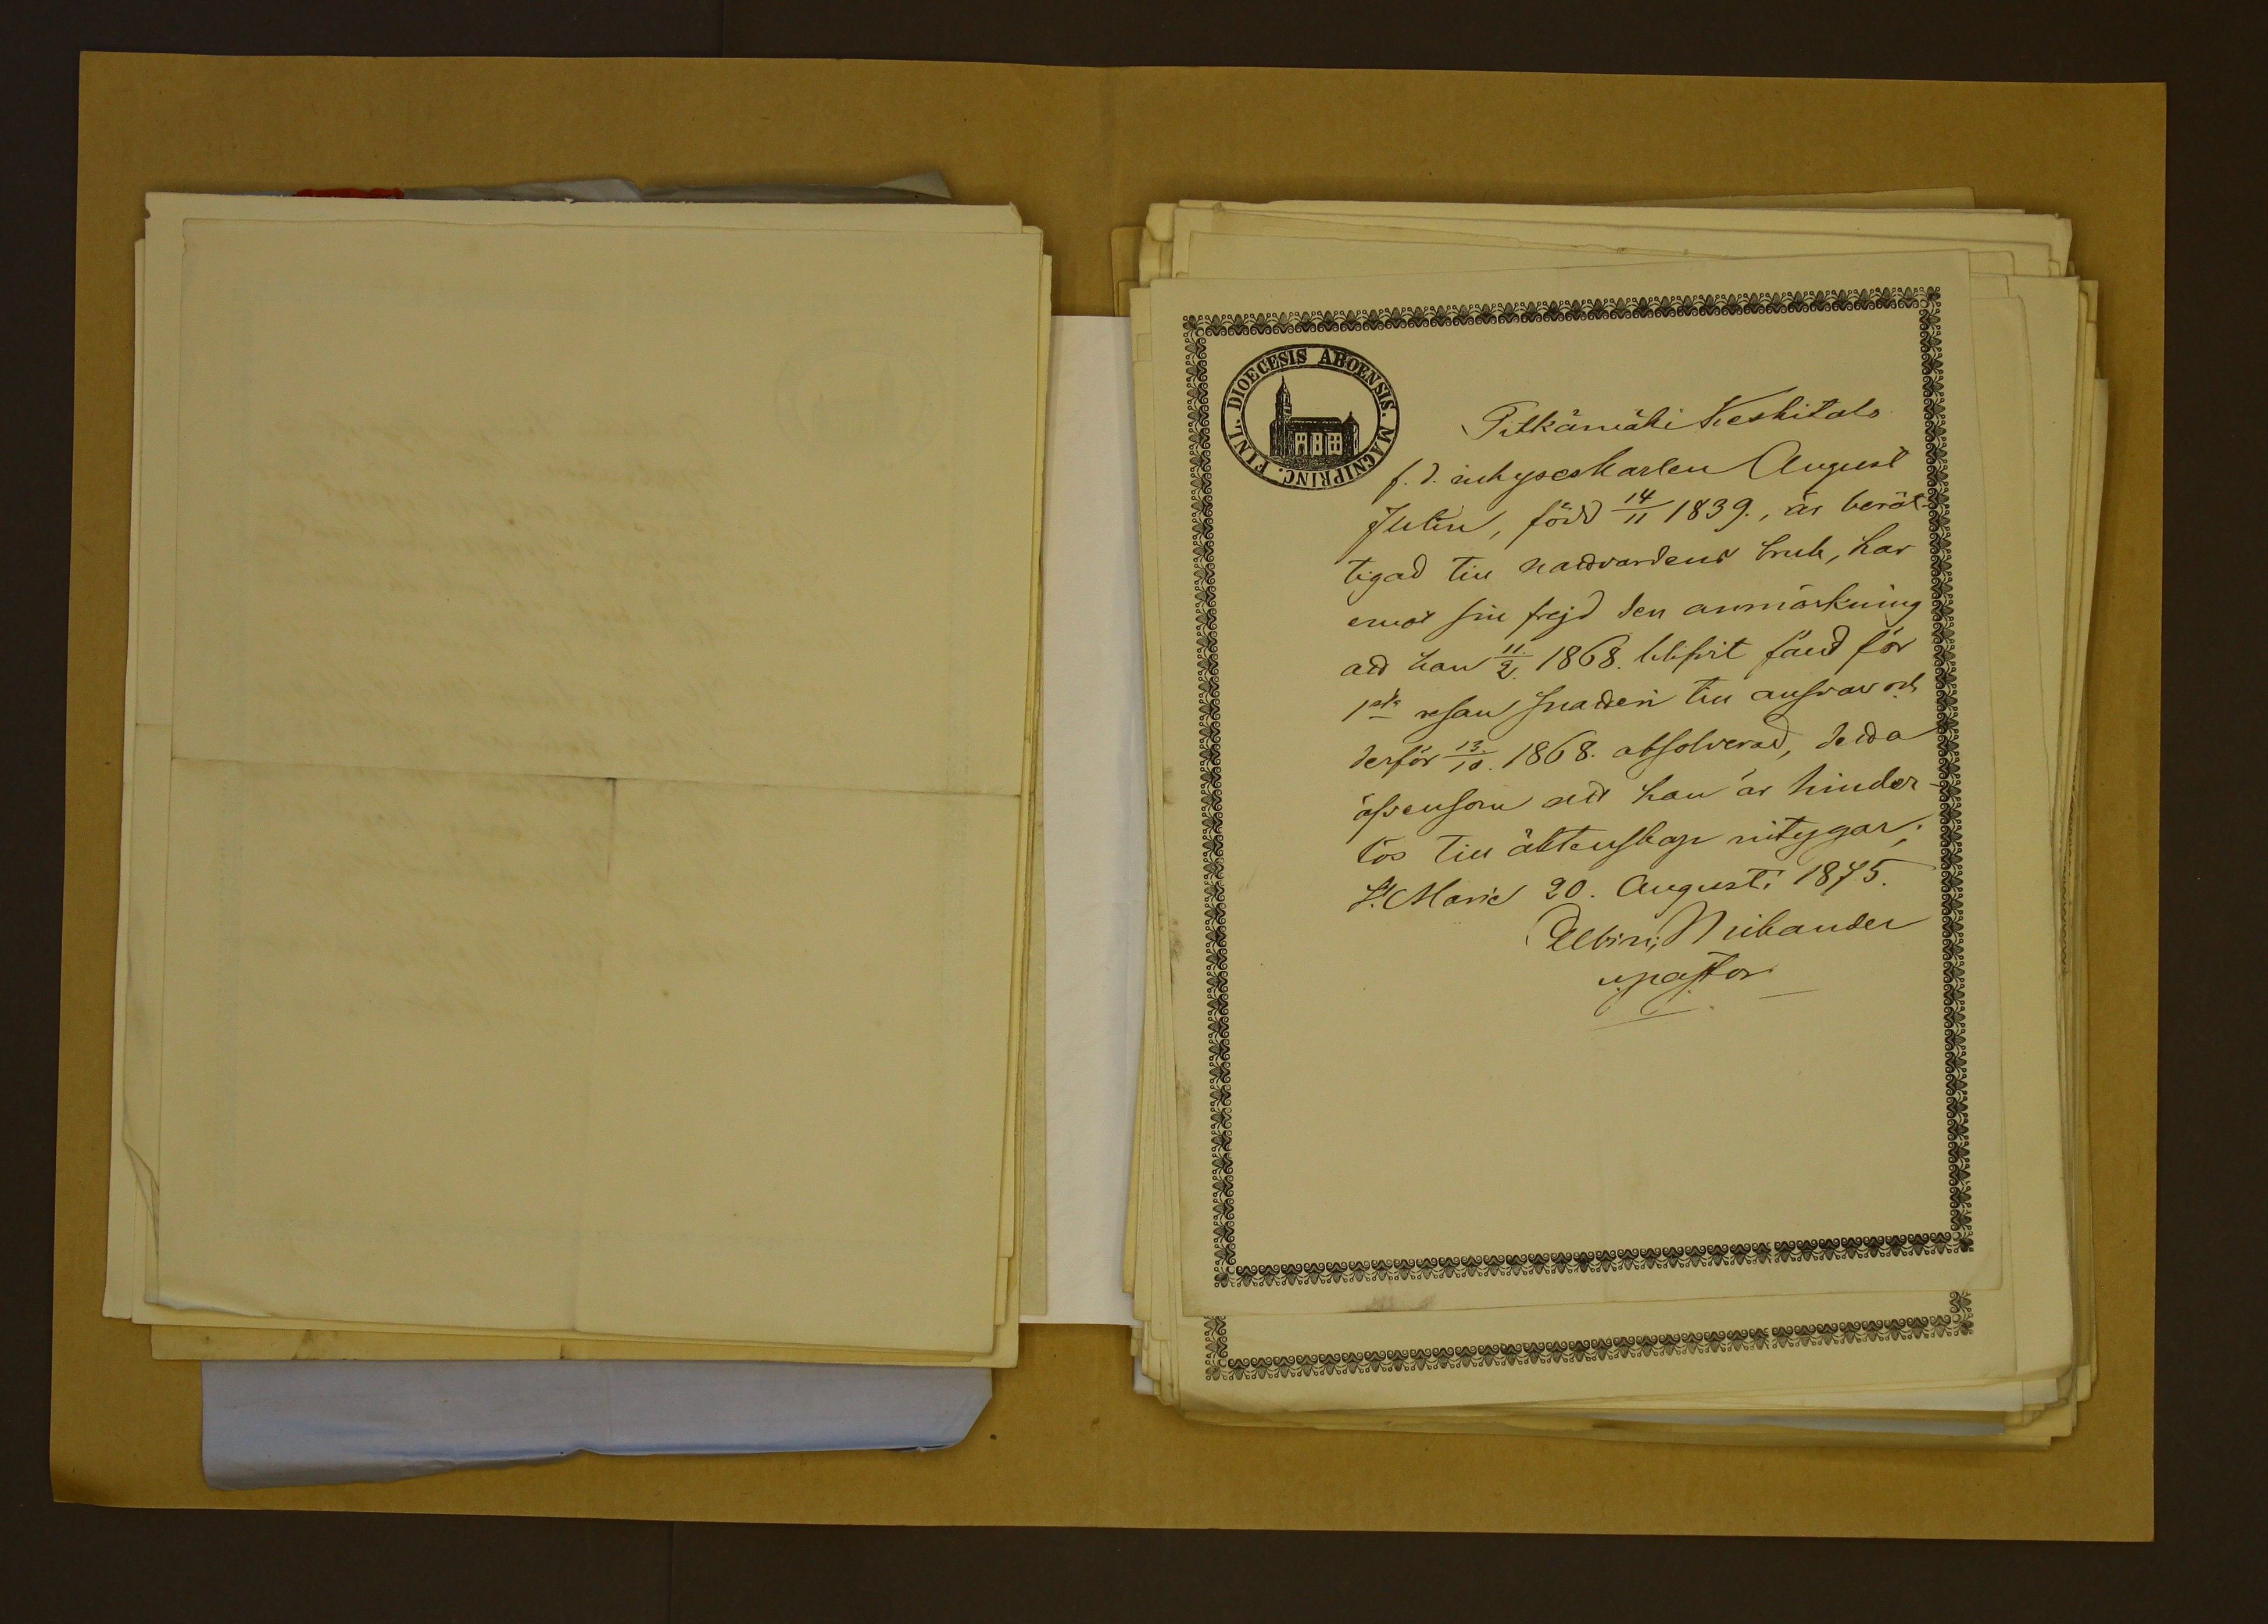 DIOECESIS ABOENSIS. MAGNIPRINC. FINL.
Pitkämäki Keskitalo
f. d. inhyseskarlen August
Julin, född 14/11 1839., är berät-
tigad till nattvardens bruk, har
emot sin frejd den anmärkning
att han 11/2. 1868. blifvit fäld för
1sta resan snatteri till ansvar och
derför 13/10. 1868. absolverad, detta
äfvensom att han är hinder-
lös till äktenskap intygar;
St. Marie 20. Augusti 1875.
Albin Nibander
v. pastor